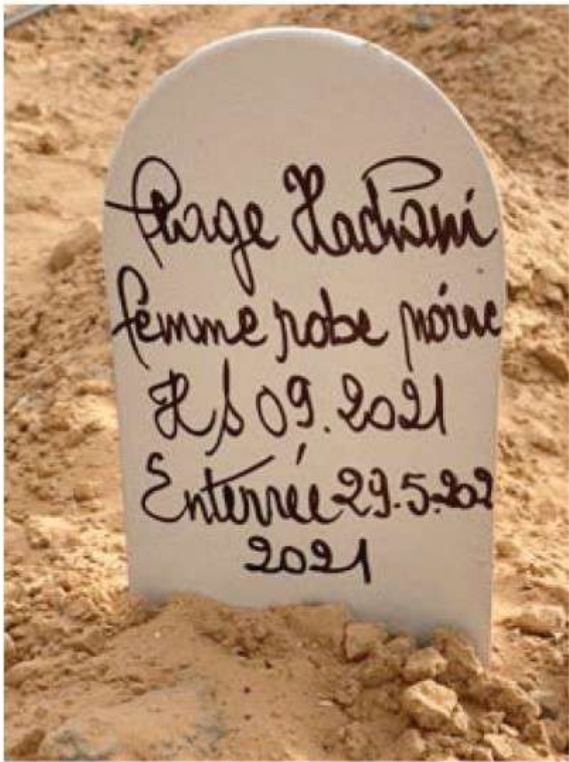 Plage Hachani
femme robe noire
H S 09.2021
Enterrée 29.5.202
2021